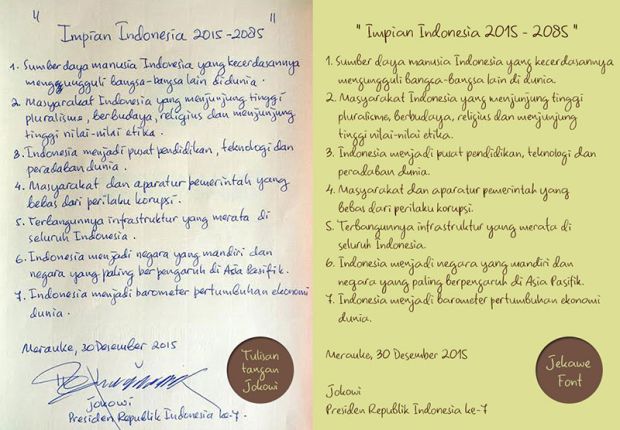 " Impian Indonesia 2015-2085 "
1. Sumber daya manusia Indonesia yang kecerdasannya
mengungguli bangsa-bangsa lain di dunia.
2. Masyarakat Indonesia yang menjunjung tinggi
pluralisme, berbudaya, religius dan menjunjung
tinggi nilai-nilai etika.
3. Indonesia menjadi pusat pendidikan, teknologi dan
peradaban dunia.
4. Masyarakat dan aparatur pemerintah yang
bebas dari perilaku korupsi.
5. Terbangunnya infrastruktur yang merata di
seluruh Indonesia.
6. Indonesia menjadi negara yang mandiri dan
negara yang paling berpengaruh di Asia Pasifik.
7. Indonesia menjadi barometer pertumbuhan ekonomi
dunia.
Merauke, 30 Desember 2015
Jokowi
Presiden Republik Indonesia ke-7.
Tulisan
tangan
Jokowi
" Impian Indonesia 2015 - 2085 "
1. Sumber daya manusia Indonesia yang kecerdasannya
mengungguli bangsa-bangsa lain di dunia.
2. Masyarakat Indonesia yang menjunjung tinggi
pluralisme, berbudaya, religius dan menjunjung
tinggi nilai-nilai etika.
3. Indonesia menjadi pusat pendidikan, teknologi dan
peradaban dunia.
4. Masyarakat dan aparatur pemerintah yang
bebas dari perilaku korupsi.
5. Terbangunnya infrastruktur yang merata di
seluruh Indonesia.
6. Indonesia menjadi negara yang mandiri dan
negara yang paling berpengaruh di Asia Pasifik.
7. Indonesia menjadi barometer pertumbuhan ekonomi
dunia.
Merauke, 30 Desember 2015
Jokowi
Presiden Republik Indonesia ke-7
Jekawe
Font